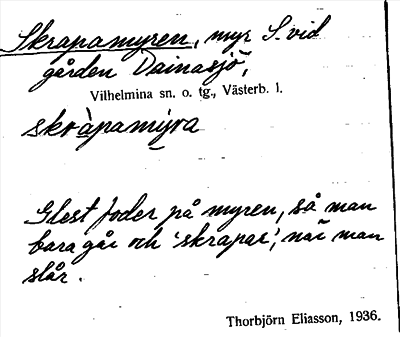 Skrapamyren, myr S. vid
gården Dainasjö,
Vilhelmina sn. o. tg., Västerb. l.
skràpamýra
Glest foder på myren, så man
bara går och 'skrapar', när man
slår.
Thorbjörn Eliasson, 1936.